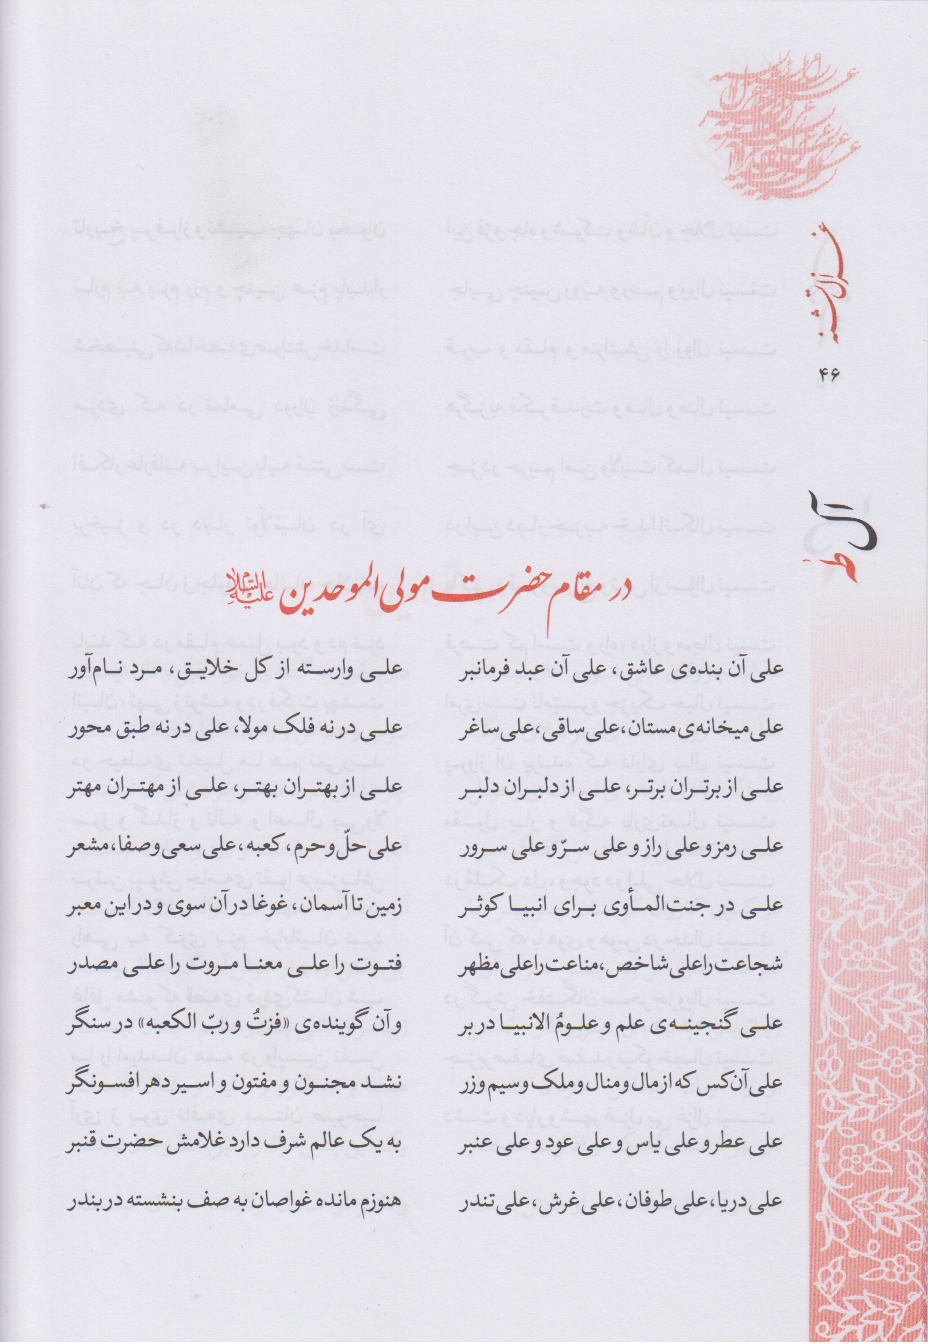 ۴۶
در مقام حضرت مولی الموحدین علیه السلام
علی آن بنده‌ی عاشق، علی آن عبد فرمانبر علی وارسته از کل خلایق، مرد نام‌آور
علی میخانه‌ی مستان، علی ساقی، علی ساغر علی در نه فلک مولا، علی در نه طبق محور
علی از برتران برتر، علی از دلبران دلبر علی از بهتران بهتر، علی از مهتران مهتر
علی رمز و علی راز و علی سرّ و علی سرور علی حلّ و حرم، کعبه، علی سعی و صفا، مشعر
علی در جنت‌المأوی برای انبیا کوثر زمین تا آسمان، غوغا در آن سوی و در این معبر
شجاعت را علی شاخص، مناعت را علی مظهر فتوت را علی معنا مروت را علی مصدر
علی گنجینه‌ی علم و علومُ الانبیا در بر و آن گوینده‌ی «فزتُ و ربّ الکعبه» در سنگر
علی آن‌کس که از مال و منال و ملک و سیم و زر نشد مجنون و مفتون و اسیر دهر افسونگر
علی عطر و علی یاس و علی عود و علی عنبر به یک عالم شرف دارد غلامش حضرت قنبر
علی دریا، علی طوفان، علی غرش، علی تندر هنوزم مانده غواصان به صف بنشسته در بندر